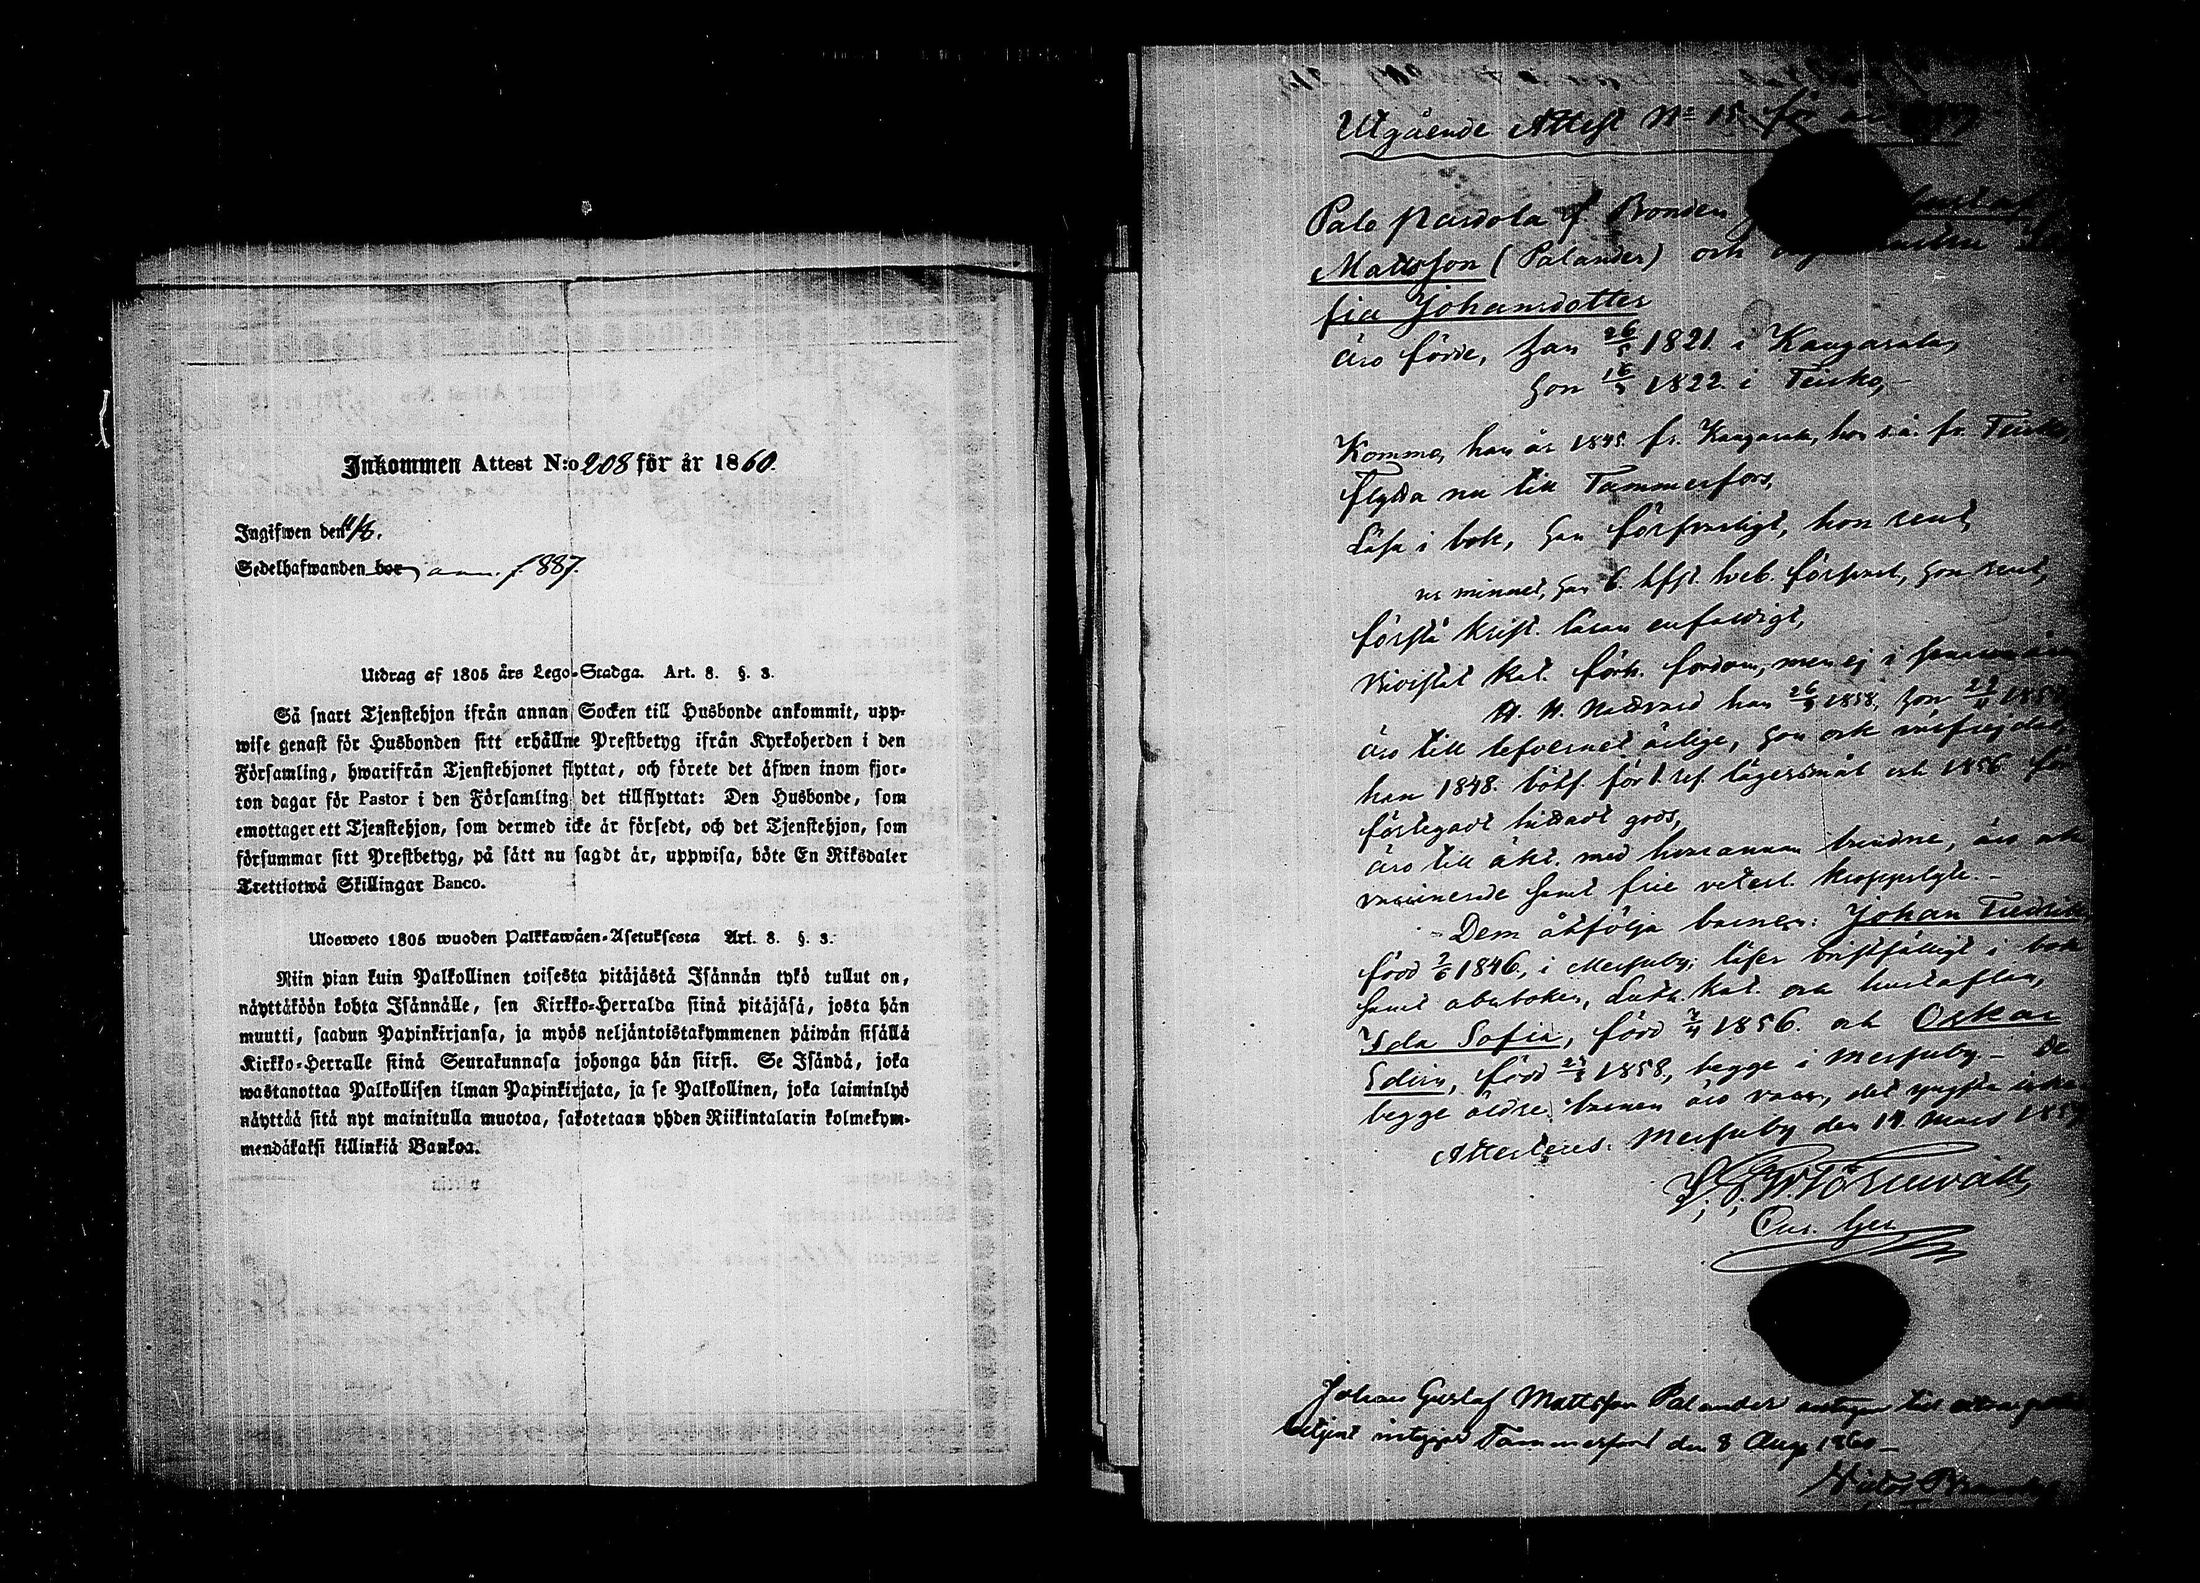 Inkommen Attest N:o 208 för år 1860.
Ingifwen den 11/8.
Sedelhafwanden bor ann. f. 887.
Utdrag af 1805 års Lego-Stadga. Art. 8. §. 3.
Så snart Tjenstehjon ifrån annan Socken till Husbonde ankommit, upp-
wise genast för Husbonden sitt erhållne Prestbetyg ifrån Kyrkoherden i den
Församling, hwarifrån Tjenstehjonet flyttat, och förete det äfwen inom fjor-
ton dagar för Pastor i den Församling det tillflyttat: Den Husbonde, som
emottager ett Tjenstehjon, som dermed icke är försedt, och det Tjenstehjon, som
försummar sitt Prestbetyg, på sätt nu sagdt är, uppwisa, böte En Riksdaler
Trettiotwå Skillingar Banco.
Ulosweto 1805 wuoden Palkkawäen-Asetuksesta Art. 8. §. 3.
Niin pian kuin Palkollinen toisesta pitäjästä Isännän tykö tullut on,
näyttäköön kohta Isännälle, sen Kirkko-Herralda siinä pitäjäsä, josta hän
muutti, saadun Papinkirjansa, ja myös neljäntoistakymmenen päiwän sisällä
Kirkko-Herralle siinä Seurakunnasa johonga hän siirsi. Se Isändä, joka
wastanottaa Palkollisen ilman Papinkirjata, ja se Palkollinen, joka laiminlyö
näyttää sitä nyt mainitulla muotoa, sakotetaan yhden Riikintalarin kolmekym-
mendäkaksi killinkiä Bankoa.
Utgående Attest No 15 för
Palo Bonden
Mattsson (Palander) och
fia Johansdotter
äro födde, han 26/5 1821 i Kangasala,
hon 1822 i Teisko,
Komma, han år 1845 fr. Kangasala, hon s. å. fr. Teisko
flytta nu till Tammerfors,
Läsa i bok, han försvarligt, hon rent,
ur minnet, han 6. hfst. hvb. försvarl., hon rent,
förstå krist. läran enfaldigt,
Bivistat kat. förh. fordom, men ej i
H. H. Nattvard han 26/9 1858, hon
äro till lefvernet ärlige, hon ock
han 1848. bötf. för 1. ref. lägersmål och 1856 för
förtegadt hittadt gods,
äro till äkt. med hvarannan bundne, äro
vaccinerade samt frie veterl. kroppslyte. –
– Dem åtfölja barnen: Johan Fredrik
född 2/6 1846, i Messuby; läser bristfälligt i bok
samt abcboken, Luth. kat. och hustaflan,
Ida Sofia, född 1856. och Oskar
Edvin, född 1858, begge i Messuby – De
begge äldre barnen äro vacc., det yngsta icke
Attesteras. Messuby den 19 Mars
Johan Gustaf Mattsson Palander antagen till
betjent Tammerfors den 8 Aug. 1860 –